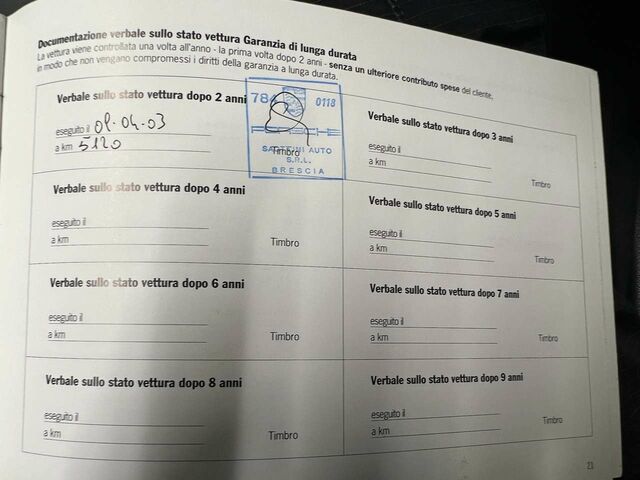 Documentazione verbale sullo stato vettura Garanzia di lunga durata
La vettura viene controllata una volta all'anno - la prima volta dopo 2 anni - senza un ulteriore contributo spese del cliente,
in modo che non vengano compromessi i diritti della garanzia a lunga durata.
Verbale sullo stato vettura dopo 2 anni
eseguito il 04-03
a km 5120
Timbro
784
0118
AUTO
S.R.L.
BRESCIA
Verbale sullo stato vettura dopo 3 anni
eseguito il
a km
Timbro
Verbale sullo stato vettura dopo 4 anni
eseguito il
a km
Timbro
Verbale sullo stato vettura dopo 5 anni
eseguito il
a km
Timbro
Verbale sullo stato vettura dopo 6 anni
eseguito il
a km
Timbro
Verbale sullo stato vettura dopo 7 anni
eseguito il
a km
Timbro
Verbale sullo stato vettura dopo 8 anni
eseguito il
a km
Timbro
Verbale sullo stato vettura dopo 9 anni
eseguito il
a km
Timbro
23